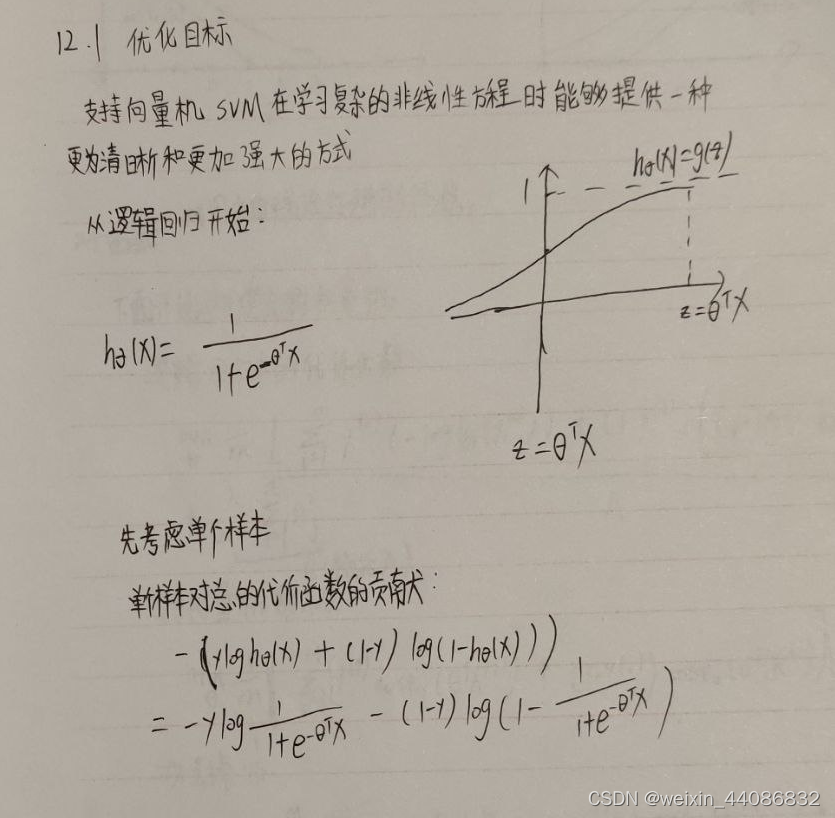 12.1 优化目标
支持向量机 SVM 在学习复杂的非线性方程时能够提供一种
更为清晰和更加强大的方式
从逻辑回归开始:
hθ(x)=g(z)
1
z=θᵀx
hθ(x)= 1/(1+e^(-θᵀx))
z=θᵀx
先考虑单个样本
单个样本对总的代价函数的贡献:
-(ylog hθ(x) + (1-y) log(1-hθ(x)))
= -ylog 1/(1+e^(-θᵀx)) - (1-y) log(1- 1/(1+e^(-θᵀx)))
CSDN @weixin_44086832